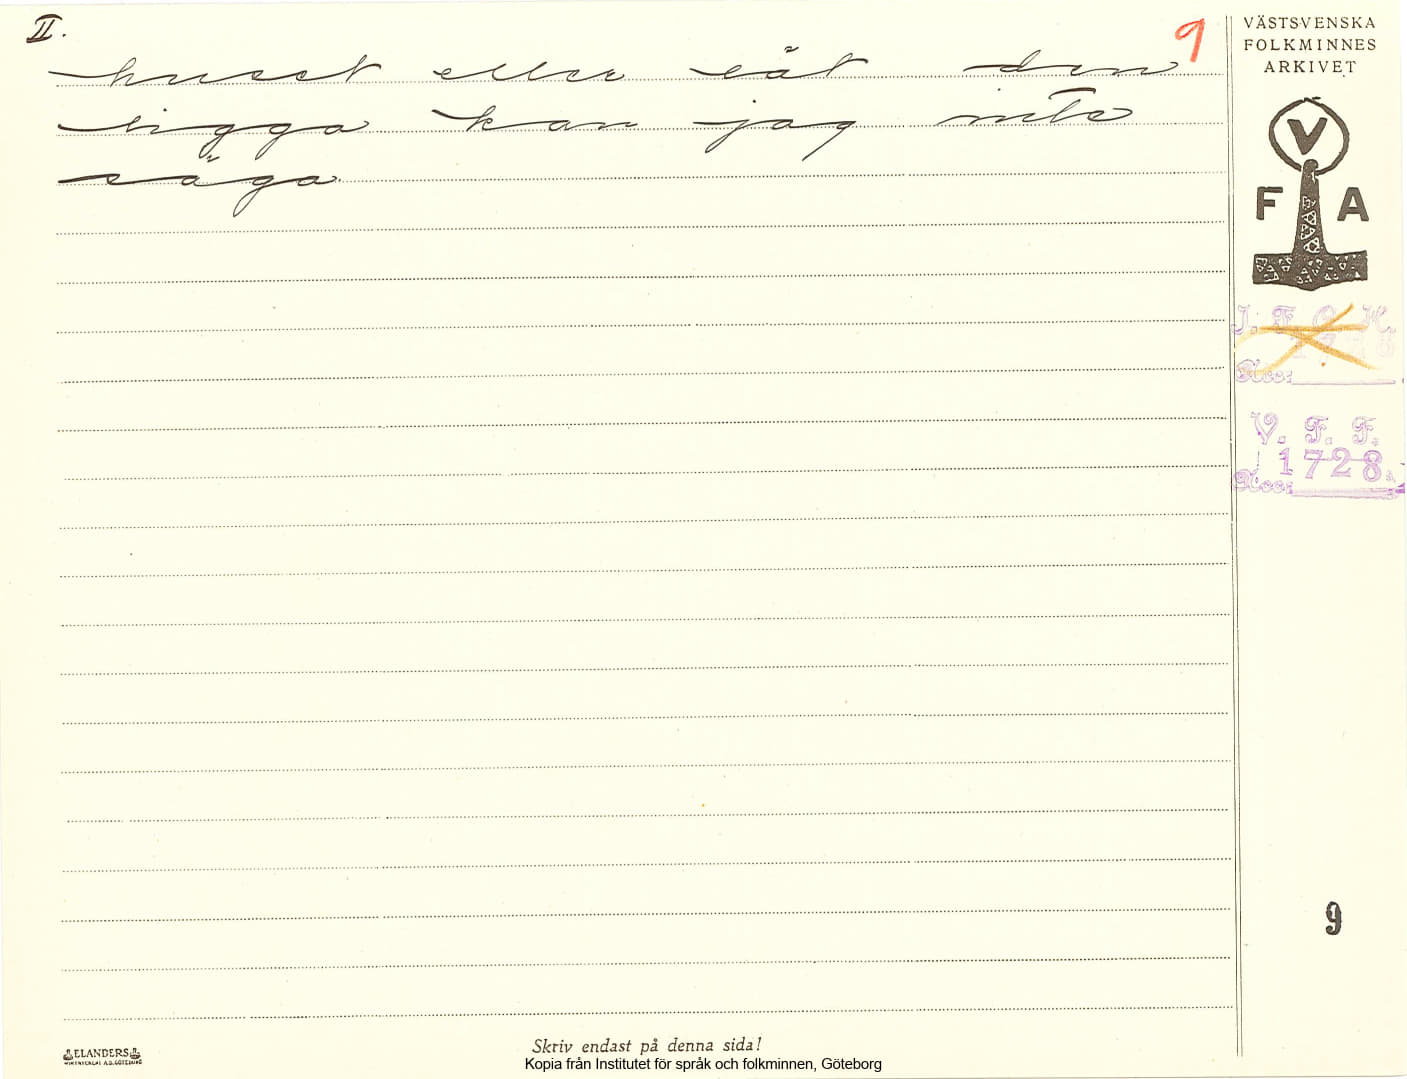 II.
9
huset eller lät den
ligga kan jag inte
säga.
VÄSTSVENSKA
FOLKMINNES
ARKIVET
V
F A
I. F. G. H.
1728
Acc:
V. F. F.
1728
Acc:
9
ELANDERS
Skriv endast på denna sida!
Kopia från Institutet för språk och folkminnen, Göteborg